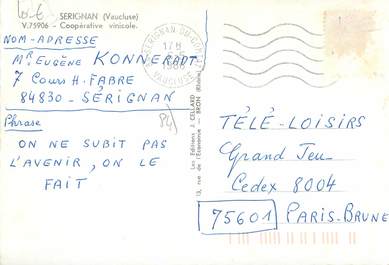 SERIGNAN (Vaucluse)
V.75906 - Coopérative vinicole.
NOM-ADRESSE
Mr. EUGÈNE KONNERADT
7 Cours H. FABRE
84830 - SÉRIGNAN
Phrase
ON NE SUBIT PAS
L'AVENIR, ON LE
FAIT
17 H
VAUCLUSE
Les Editions J. CELLARD
TÉLÉ-LOISIRS
GRAND JEU
Cedex 8004
75601 PARIS-BRUNE